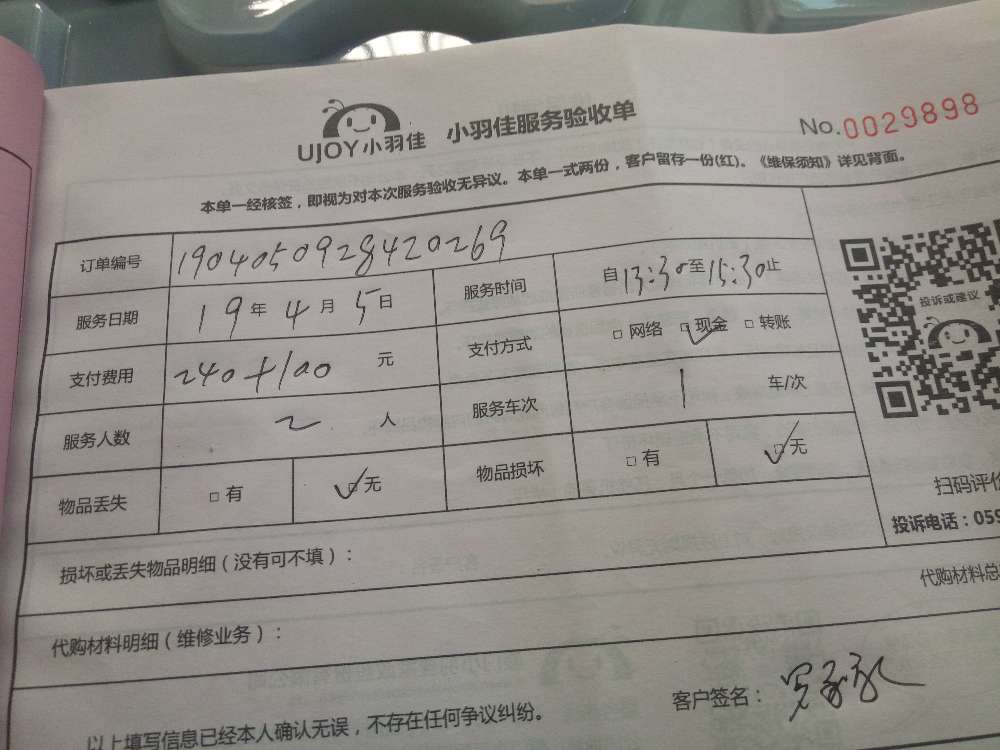 UJOY小羽佳 小羽佳服务验收单
No.0029898
本单一经核签，即视为对本次服务验收无异议。本单一式两份，客户留存一份(红)。《维保须知》详见背面。
订单编号 1904050928420269
服务日期 19年4月5日 服务时间 自13:30至15:30止
支付费用 240+100 元 支付方式 □网络 ☑现金 □转账
投诉或建议
服务人数 2 人 服务车次 1 车/次
物品丢失 □有 ☑无 物品损坏 □有 ☑无
扫码评价
投诉电话：059
损坏或丢失物品明细（没有可不填）：
代购材料总
代购材料明细（维修业务）：
客户签名：
以上填写信息已经本人确认无误，不存在任何争议纠纷。